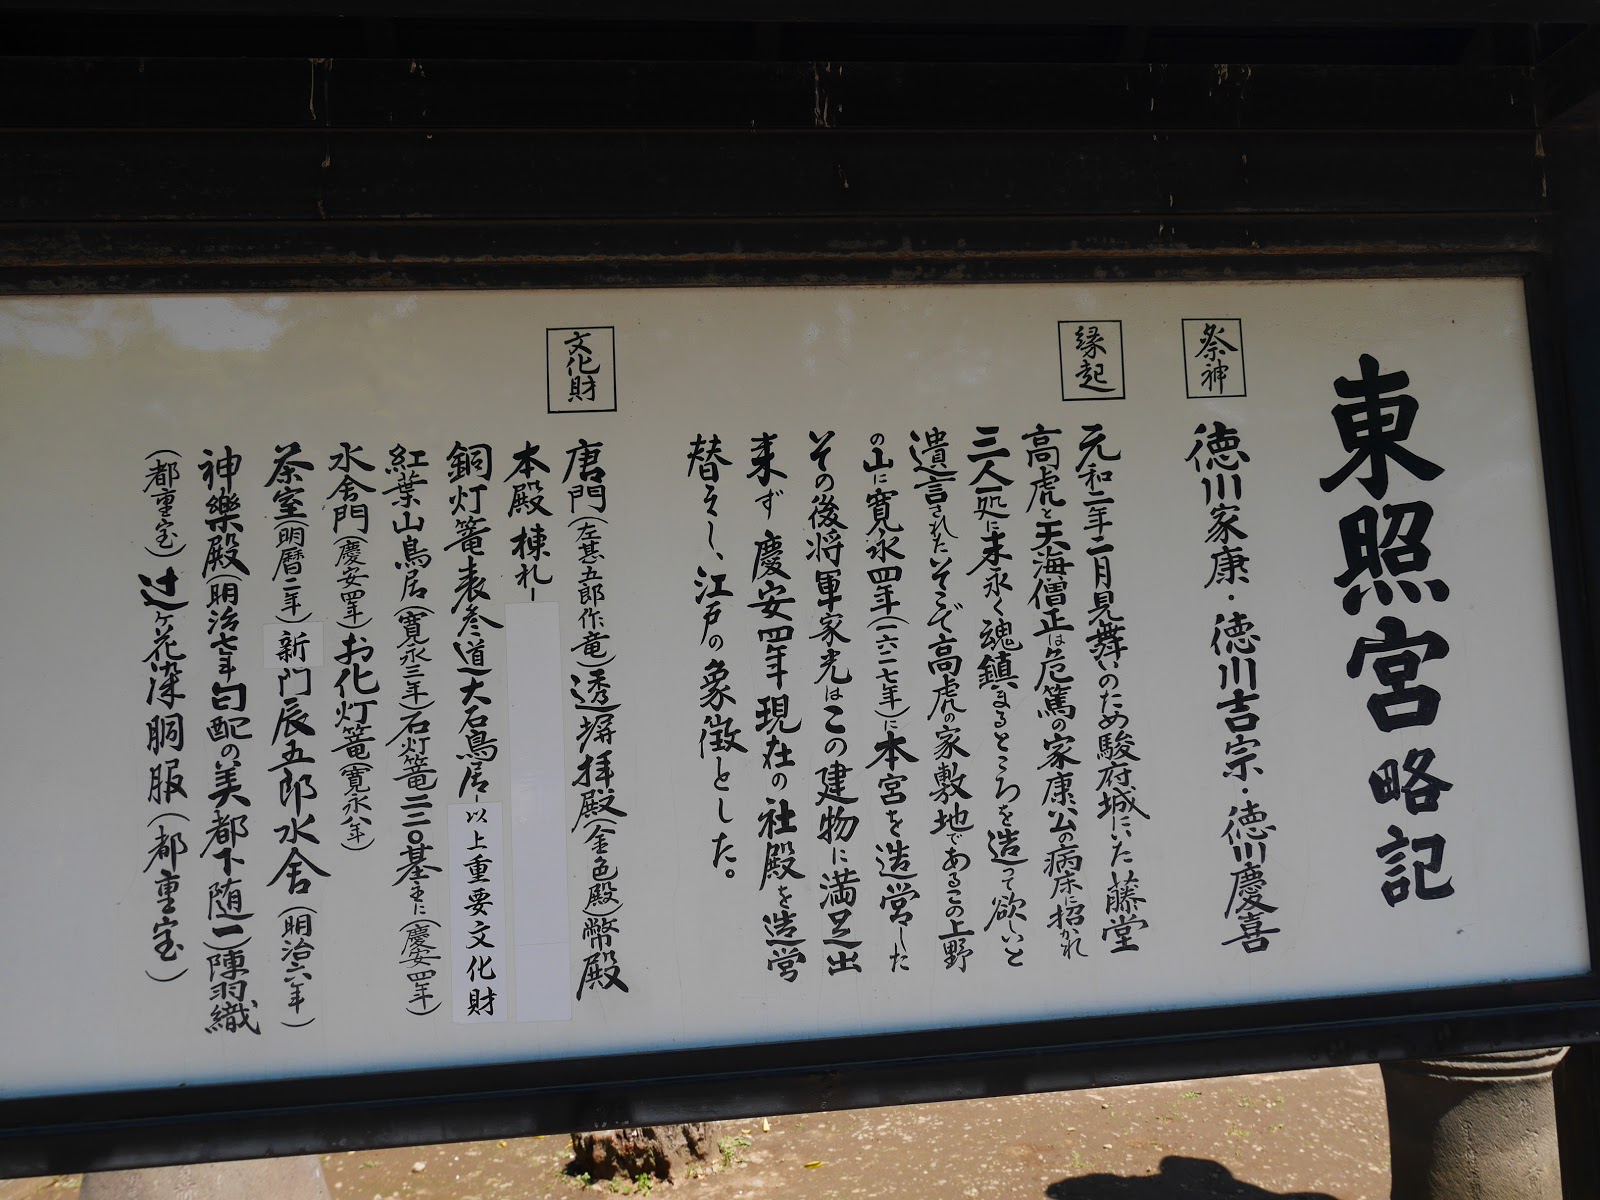 東照宮略記
祭神
徳川家康・徳川吉宗・徳川慶喜
縁起
元和二年二月見舞いのため駿府城にいた藤堂
高虎と天海僧正は危篤の家康公の病床に招かれ
三人一処に末永く魂鎮まるところを造って欲しいと
遺言されたそこで高虎の家敷地であるこの上野
の山に寛永四年(一六二七年)に本宮を造営した
その後将軍家光はこの建物に満足出
来ず慶安四年現在の社殿を造営
替えし、江戸の象徴とした。
文化財
唐門(左甚五郎作竜)透塀拝殿(金色殿)幣殿
本殿棟札-
銅灯篭表参道大石鳥居-以上重要文化財
紅葉山鳥居(寛永三年)石灯篭二二〇基主に(慶安四年)
水舎門(慶安四年)お化灯篭(寛永八年)
茶室(明暦二年)新門辰五郎水舎(明治六年)
神樂殿(明治七年匂配の美都下随一)陳羽織
(都重宝)辻ヶ花染胴服(都重宝)